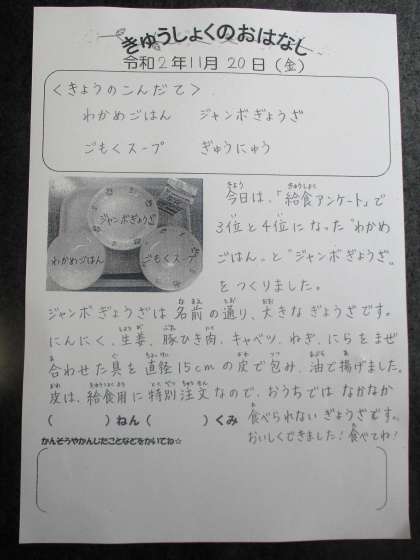 きゅうしょくのおはなし
令和2年11月20日（金）
＜きょうのこんだて＞
わかめごはん　ジャンボぎょうざ
ごもくスープ　ぎゅうにゅう
ジャンボぎょうざ
わかめごはん　ごもくスープ
今日は、「給食アンケート」で
3位と4位になった"わかめ
ごはん"と"ジャンボぎょうざ"
をつくりました。
ジャンボぎょうざは名前の通り、大きなぎょうざです。
にんにく、生姜、豚ひき肉、キャベツ、ねぎ、にらをまぜ
合わせた具を直径15cmの皮で包み、油で揚げました。
皮は、給食用に特別注文なので、おうちではなかなか
食べられないぎょうざです。
おいしくできました！食べてね！
（　　　）ねん（　　　）くみ
かんそうやかんじたことなどをかいてね☆